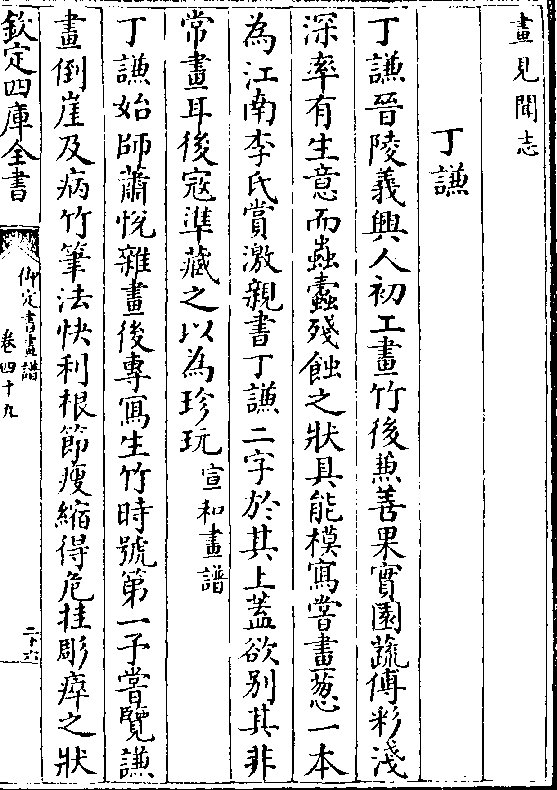 畫見聞志
丁謙
丁謙晉陵義興人初工畫竹後兼善果實園蔬傅彩淺
深率有生意而蟲蠹殘蝕之狀具能模寫嘗畫葱一本
為江南李氏賞激親書丁謙二字於其上蓋欲别其非
常畫耳後寇準藏之以為珍玩宣和畫譜
丁謙始師蕭悅雜畫後專寫生竹時號第一予嘗覽謙
畫倒崖及病竹筆法快利根節瘦縮得危挂彫瘁之狀
欽定四庫全書
御定書畫譜
卷四十九
二十六